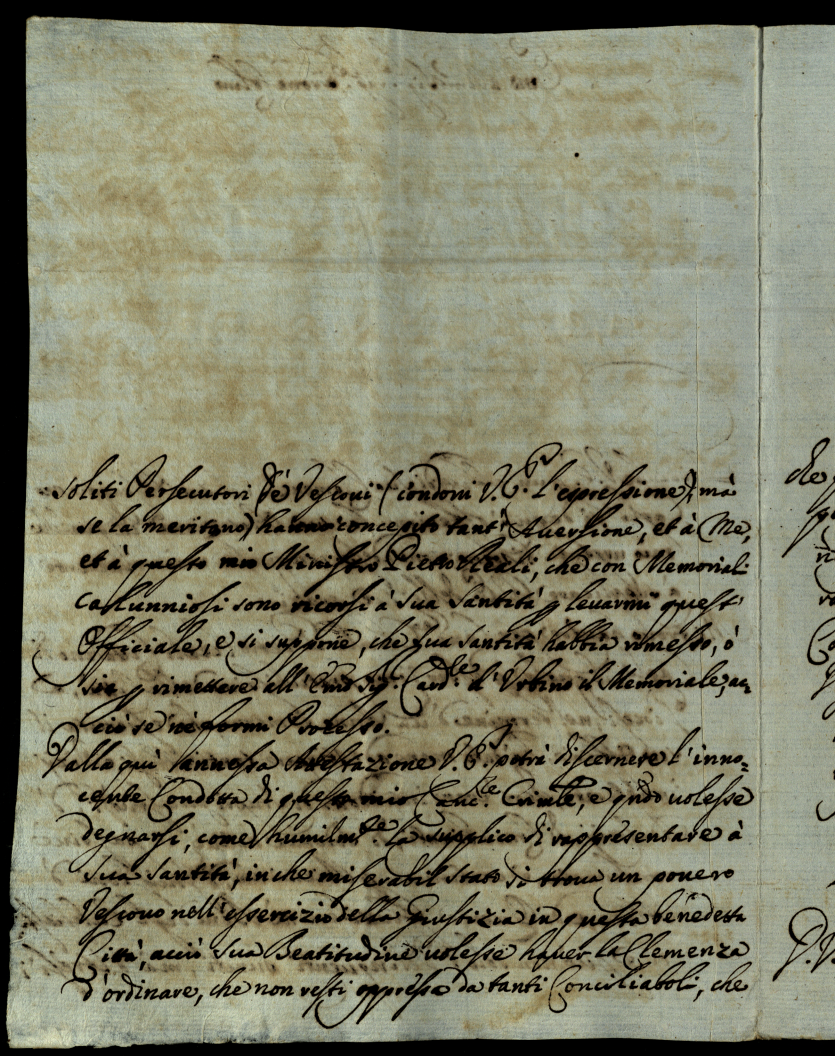 soliti Persecutori de Vescovi (condoni V. Em. l'espressione, mà
se la meritano) hanno concepito tant'Aversione, et à Me,
et à questo mio Ministro Pietro Reali, che con Memoriali
Callunniosi sono ricorsi à Sua Santità p levarmi quest'
Officiale, e si suppone, che Sua Santità habbia rimesso, ò
sia p rimettere all'Emo Sig: Card.le d'Urbino il Memoriale, ac,
ciò se ne formi Processo.
Dalla quì annessa Attestazione V. E. potrà discernere l'inno=
cente Condotta di questo mio Canc.re Crimle, e qndo volesse
degnarsi, come humilmte la supplico di rappresentare à
Sua Santità, in che miserabil stato si trova un povero
Vescovo nell'essercizio della Giustizia in questa benedetta
Città, acciò Sua Beatitudine volesse haver la Clemenza
d'ordinare, che non resti oppressa da tanti Conciliaboli, che